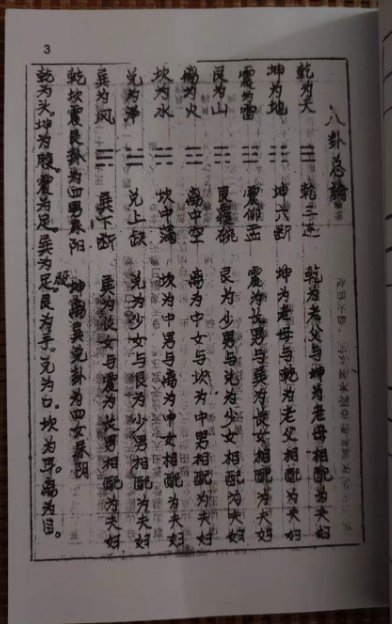 3
八卦总論
乾为天 ☰ 乾三连 乾为老父与坤为老母相配为夫妇
坤为地 ☷ 坤六断 坤为老母与乾为老父相配为夫妇
震为雷 ☳ 震仰盂 震为长男与巽为长女相配为夫妇
艮为山 ☶ 艮覆碗 艮为少男与兑为少女相配为夫妇
离为火 ☲ 离中空 离为中女与坎为中男相配为夫妇
坎为水 ☵ 坎中满 坎为中男与离为中女相配为夫妇
兑为泽 ☱ 兑上缺 兑为少女与艮为少男相配为夫妇
巽为风 ☴ 巽下断 巽为长女与震为长男相配为夫妇
乾坎震艮卦为四男属阳 坤离巽兑卦为四女属阴
股
乾为头。坤为腹。震为足。巽为足。艮为手。兑为口。坎为耳。离为目。